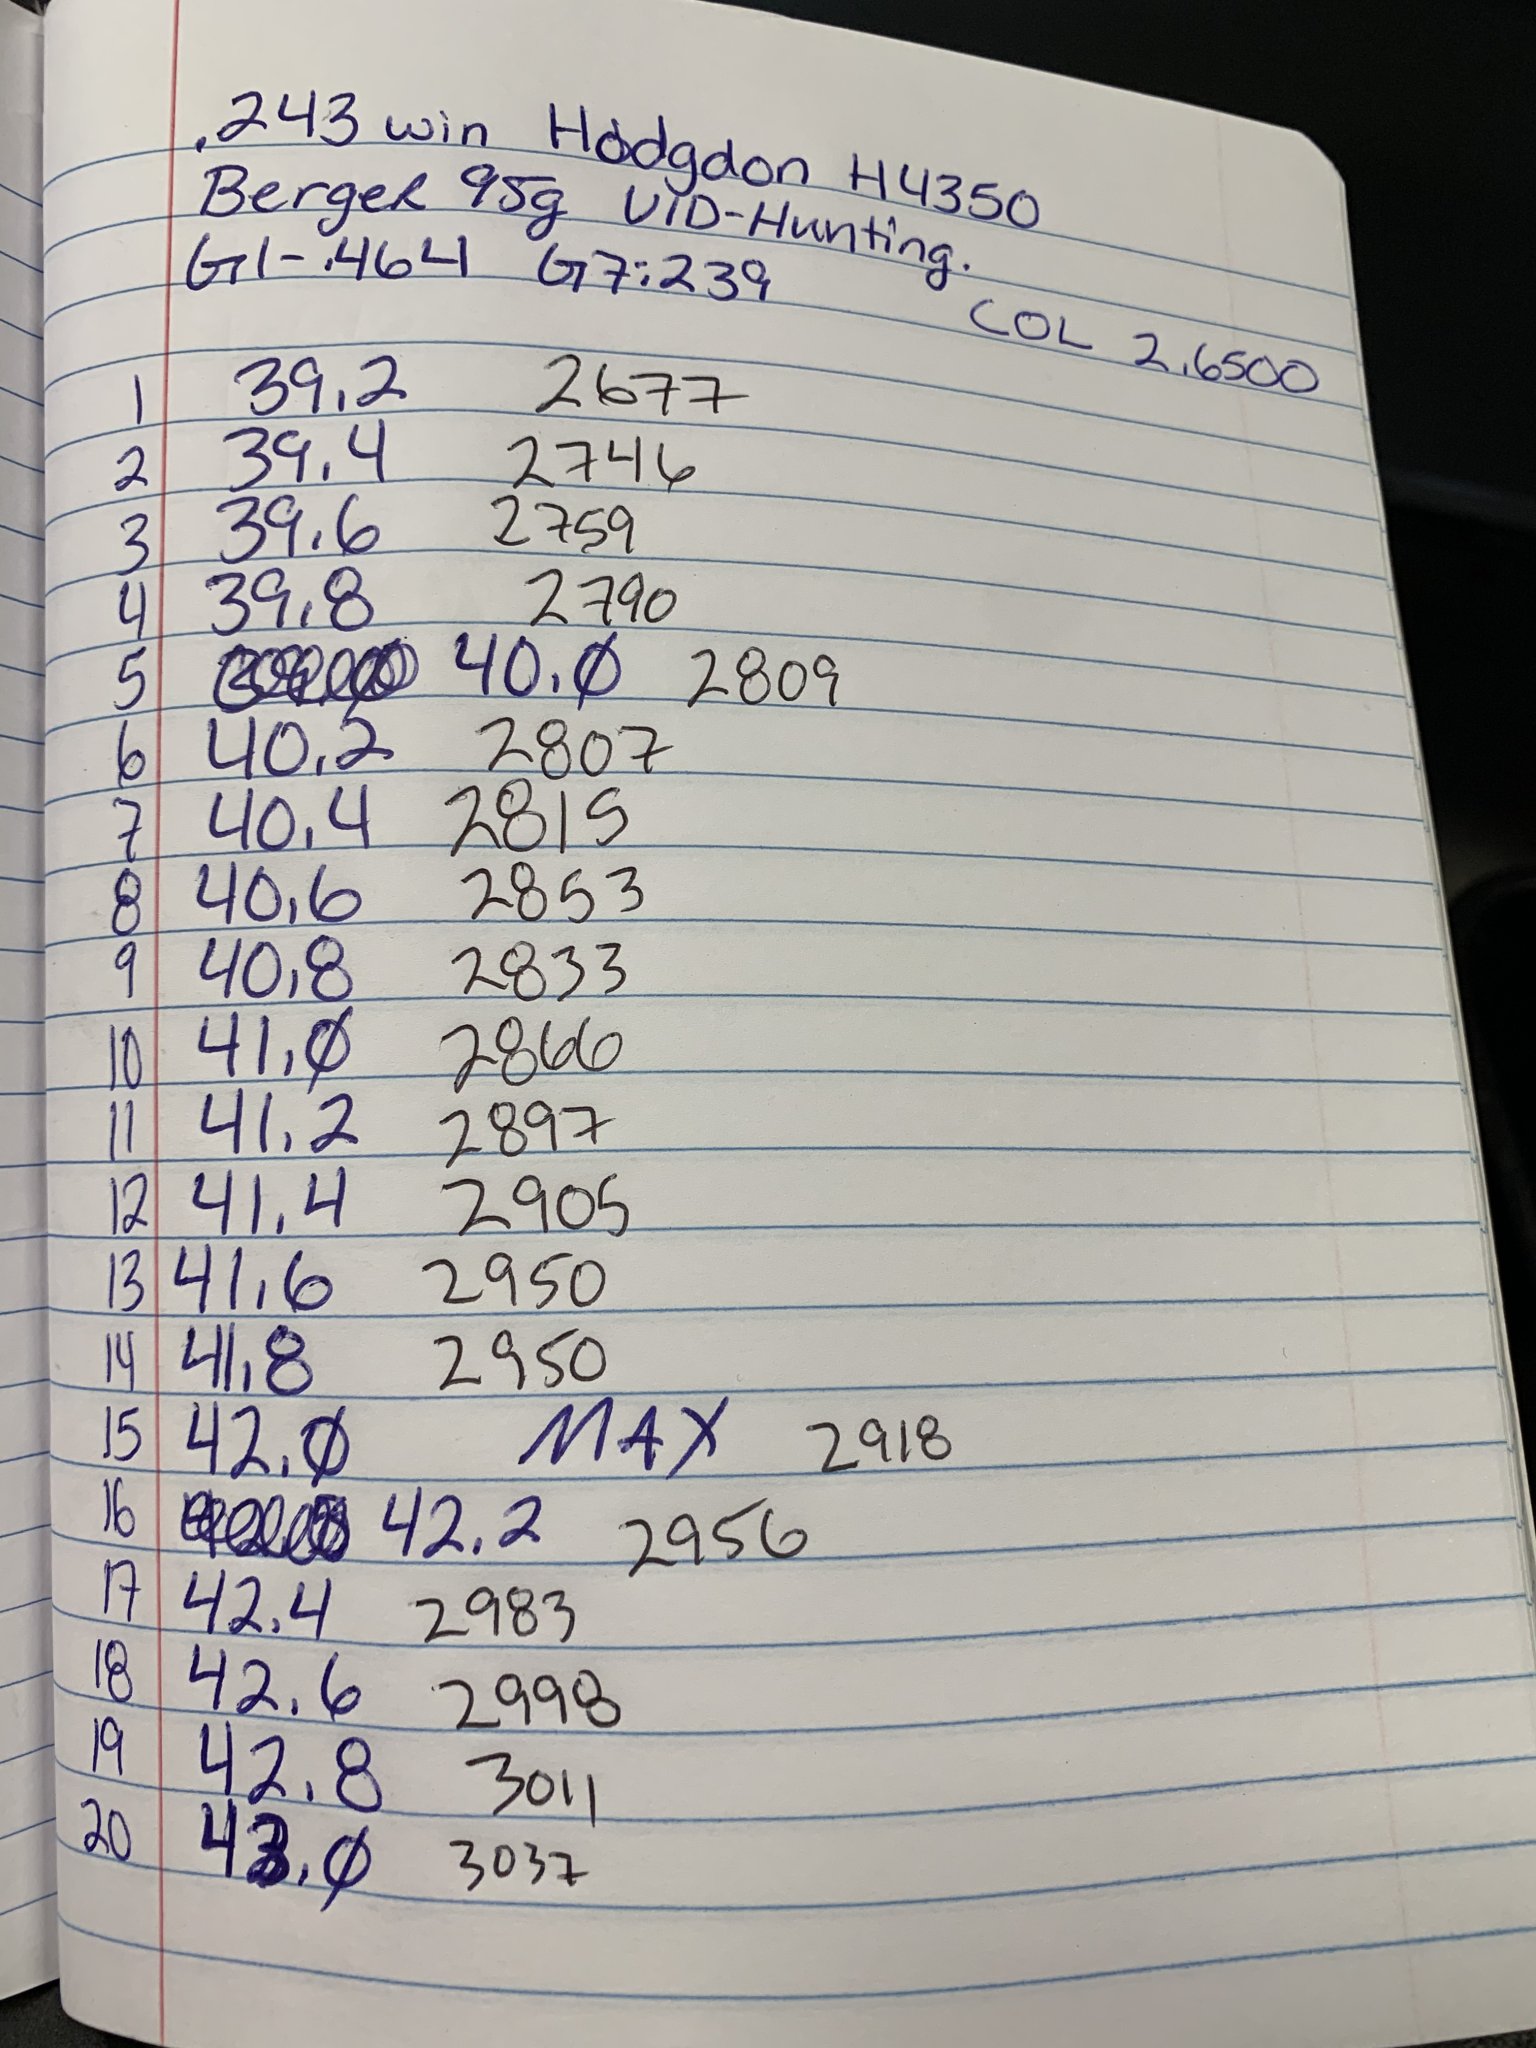 .243 win Hodgdon H4350
Berger 95g VLD-Hunting.
G1-.464 G7:239
COL 2.6500
1 39.2 2677
2 39.4 2746
3 39.6 2759
4 39.8 2790
5 40.0 2809
6 40.2 2807
7 40.4 2815
8 40.6 2853
9 40.8 2833
10 41.0 2866
11 41.2 2897
12 41.4 2905
13 41.6 2950
14 41.8 2950
15 42.0 MAX 2918
16 42.2 2956
17 42.4 2983
18 42.6 2998
19 42.8 3011
20 43.0 3037